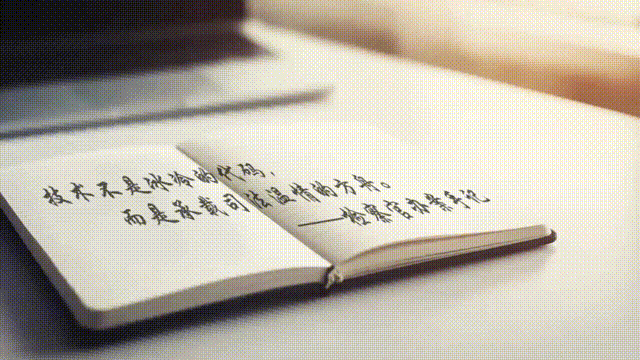 技术不是冰冷的代码，
而是承载司法温情的方舟。
——检察官办案手记